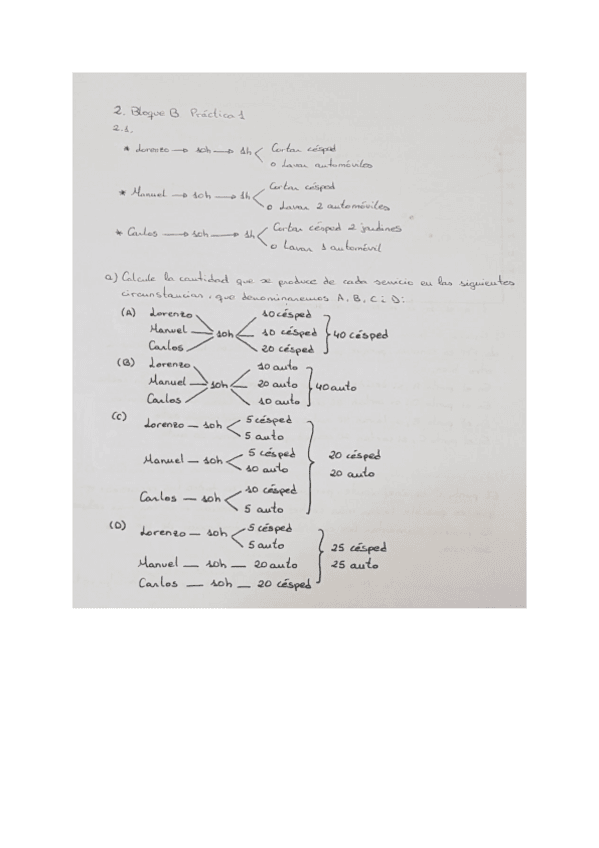 2. Bloque B Práctica 1
2.1.
* Lorenzo → 10h → 1h < Cortar césped
o Lavar automóviles
* Manuel → 10h → 1h < Cortar césped
o Lavar 2 automóviles
* Carlos → 10h → 1h < Cortar césped 2 jardines
o Lavar 1 automóvil
a) Calcule la cantidad que se produce de cada servicio en las siguientes
circunstancias, que denominaremos A, B, C i D:
(A) Lorenzo 10 césped
Manuel 10h 10 césped } 40 césped
Carlos 20 césped
(B) Lorenzo 10 auto
Manuel 10h 20 auto } 40 auto
Carlos 10 auto
(C) Lorenzo — 10h < 5 césped
5 auto
Manuel — 10h < 5 césped } 20 césped
10 auto 20 auto
Carlos — 10h < 10 césped
5 auto
(D) Lorenzo — 10h < 5 césped
5 auto } 25 césped
Manuel — 10h — 20 auto 25 auto
Carlos — 10h — 20 césped